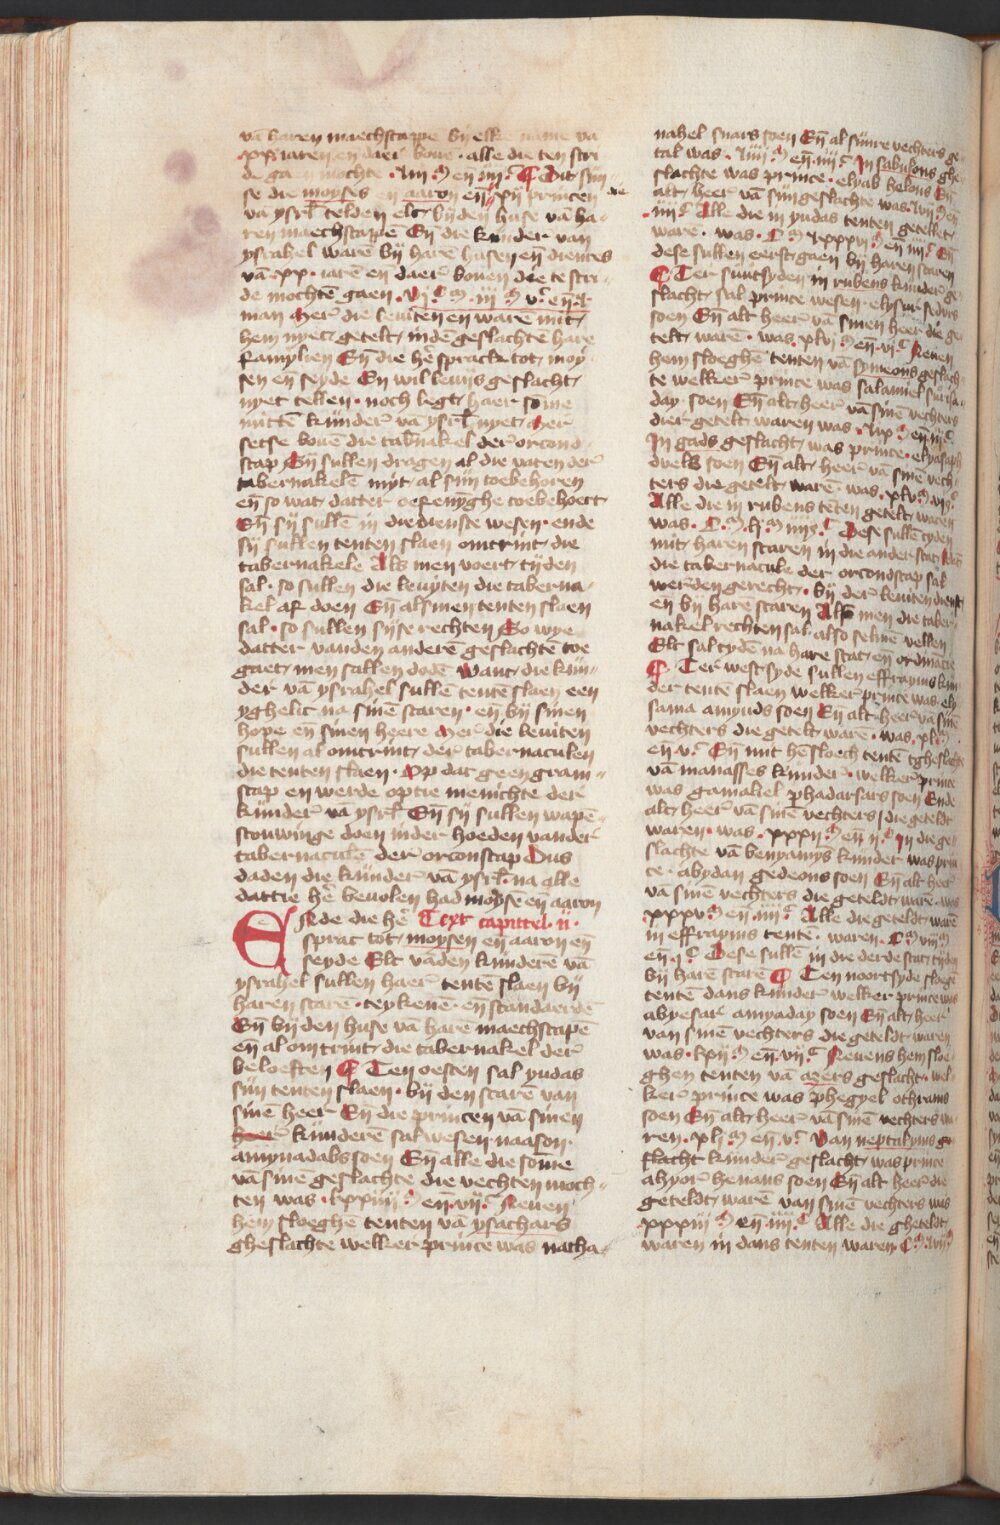 vā haren maechscappe bij elke name va
xx iaren en daer bouē · alle die ten stri
de gaen mochte · liii · M en iiii · C ¶ Dit sijn
se die moyses en aaron eñ xij princen die
vā ysrl̄ telden elc bijden huse vā ha-
ren maechscappē Eñ die kinder van
ysrahel warē bij harē husen eñ dientes
vā xx · iarē en daerˀ bouen die te stri-
de mochtē gaen · vjC M · iij M vC eñ l ·
man Merˀ die leuiten en warē mit
hem nyet getelt indē geslachtē hare
familyen Eñ die hēˀ sprack tot moy-
sen eñ seyde En wil leuijs geslacht
nyet tellen · noch legt haer sōme
mittē kinderˀ vā ysrl̄ nyet Mer
setse bouē die tabˀnakel derˀ orcond-
scap Eñ sullen dragen al die vaten derˀ
tabernakelē myt al sijn toebehoren
eñ so wat datter oefenijghe toebehoert
Eñ sij sullē in die dienste wesen · ende
sij sullen tenten slaen omtrint die
tabernakele Als men voert tijden
sal · so sullen die leuyten die taberna-
kel af doen Eñ alsmen tenten slaen
sal · so sullen sijse rechten So wye
datter vanden anderē geslachtē toe
gaet men sallen dodē Want die kin-
der vā ysrahel sullē tentē slaen een
yghelic na sinē scaren · eñ bij sinen
hope en sinen heere Merˀ die leuiten
sullen al omtrint derˀ tabernaculen
die tenten slaen · Op dat geen gram-
scap en werde optie menichte der
kinderˀ vā ysrl̄ Eñ sij sullen wapē-
scouwinge doen inder hoeden vanderˀ
tabernaculē derˀ orconscap Dus
daden die kinderˀ vā ysrl̄ · na alle
dattie hēˀ beuolen had moyse eñ aaron
Ende die hēˀ Text capittel · ij ·
sprac tot moysen eñ aaron eñ
seyde Elc vāden kinderē vā
ysrahel sullen haerˀ tentē slaen bij
haren scarē · teykenē · eñ standaerdē
Eñ bijden huse vā harē maechscapē
eñ al omtrint die tabernakel derˀ
beloeften ¶ Ten oesten sal yudas
sijn tenten slaen · bij den scarē van
sinē heer Eñ die princen vā sinen
heerˀ kinderē sal wesen naason ·
amynadabs soen Eñ alle die sōme
vā sinē geslachte die vechten moch-
ten was · lxxiiij M · eñ · vij C Neuen
hem sloeghē tenten vā ysachars
gheslachte welker prince was natha-
nahel suars soen Eñ al sijnre vechters ge-
tal was · liiij M eñ · iiij C In sabulons ghe-
slachte was prince · elyab helons Eñ
alt heer vā sijn geslachte was · lvij M eñ
iiij C Alle die in yudas tenten getellet
warē · was · C M lxxxvi M eñ iiij C Eñ
dese sullen eerst gaen bij haren scaren
¶ Ter suutsyden in rubens kinderˀ ge-
slacht sal prince wesen · elysur sedurs
soen Eñ alt heerˀ vā sinen heer die ge-
telt warē · was · xlvi M eñ · vi C Neuen
hem sloeghē tenten vā symeons geslach-
te welkerˀ prince was salamiel surisa-
day · soen Eñ alt heerˀ vā sinē vechters
dier getelt waren was · lix M eñ iij C
In gads geslacht was prince · elyasaph
duels soen Eñ alt heerˀ vā sinē vech-
ters die getelt warē · was · xlv M · vi C
Alle die in rubens tētē getelt waren
was · C M · lj M iiij C Dese sullē tyden
mit haren scaren in die ander stat Mer
die tabernacule der orcondscap sal
werden gerecht · bij derˀ leuiten dienst
eñ bij hare scaren Also men die taber-
nakel rechten sal · also selmē vellen
Elc sal tydē na hare stat · eñ ordinacie
¶ Ter west syde sullen effrayms kin-
der tentē slaen welkerˀ prince was ely-
sama amyuds soen Eñ alt heerˀ vā sinē
vechters die getelt warē · was · xl M
eñ · v C Eñ mit hē sloech tentē tgheslachte
vā manasses kinderˀ · welkerˀ prince
was gamaliel phadassars soen Ende
alt heerˀ vā sinē vechters die geteldt
waren · was · xxxij M eñ ij C In die ge-
slachte vā benyamijs kinder was prin-
ce · abydan gedeons soen Eñ alt heerˀ
vā sinē vechters die geteldt warē · was
xxxv M eñ · iiij C Alle die geteldt warē
in effrayms tentē · waren · C M viij M
eñ · j C Dese sullē in die derde stat tyden
bij harē scarē ¶ Ten noortsyde sloegē
tentē dans kinderˀ welker prince was
abyesar amysaday soen Eñ alt heerˀ
van sinē vechters die geteldt waren
was · lxij M eñ · vij C Neuens hem sloe-
ghen tenten vā azers geslacht · wel-
kerˀ prince was phegyel othrans
soen Eñ alt heerˀ vā sinē vechters wa-
ren · xlj M eñ · v C Van neptalyms ge-
slacht kinderˀ geslacht was prince
ahyorˀ henans soen Eñ alt heerˀ die
geteldt warē van sinē vechters was
xxxiij M eñ iiij C Alle die gheteldt
waren in dans tenten waren C M lvij M